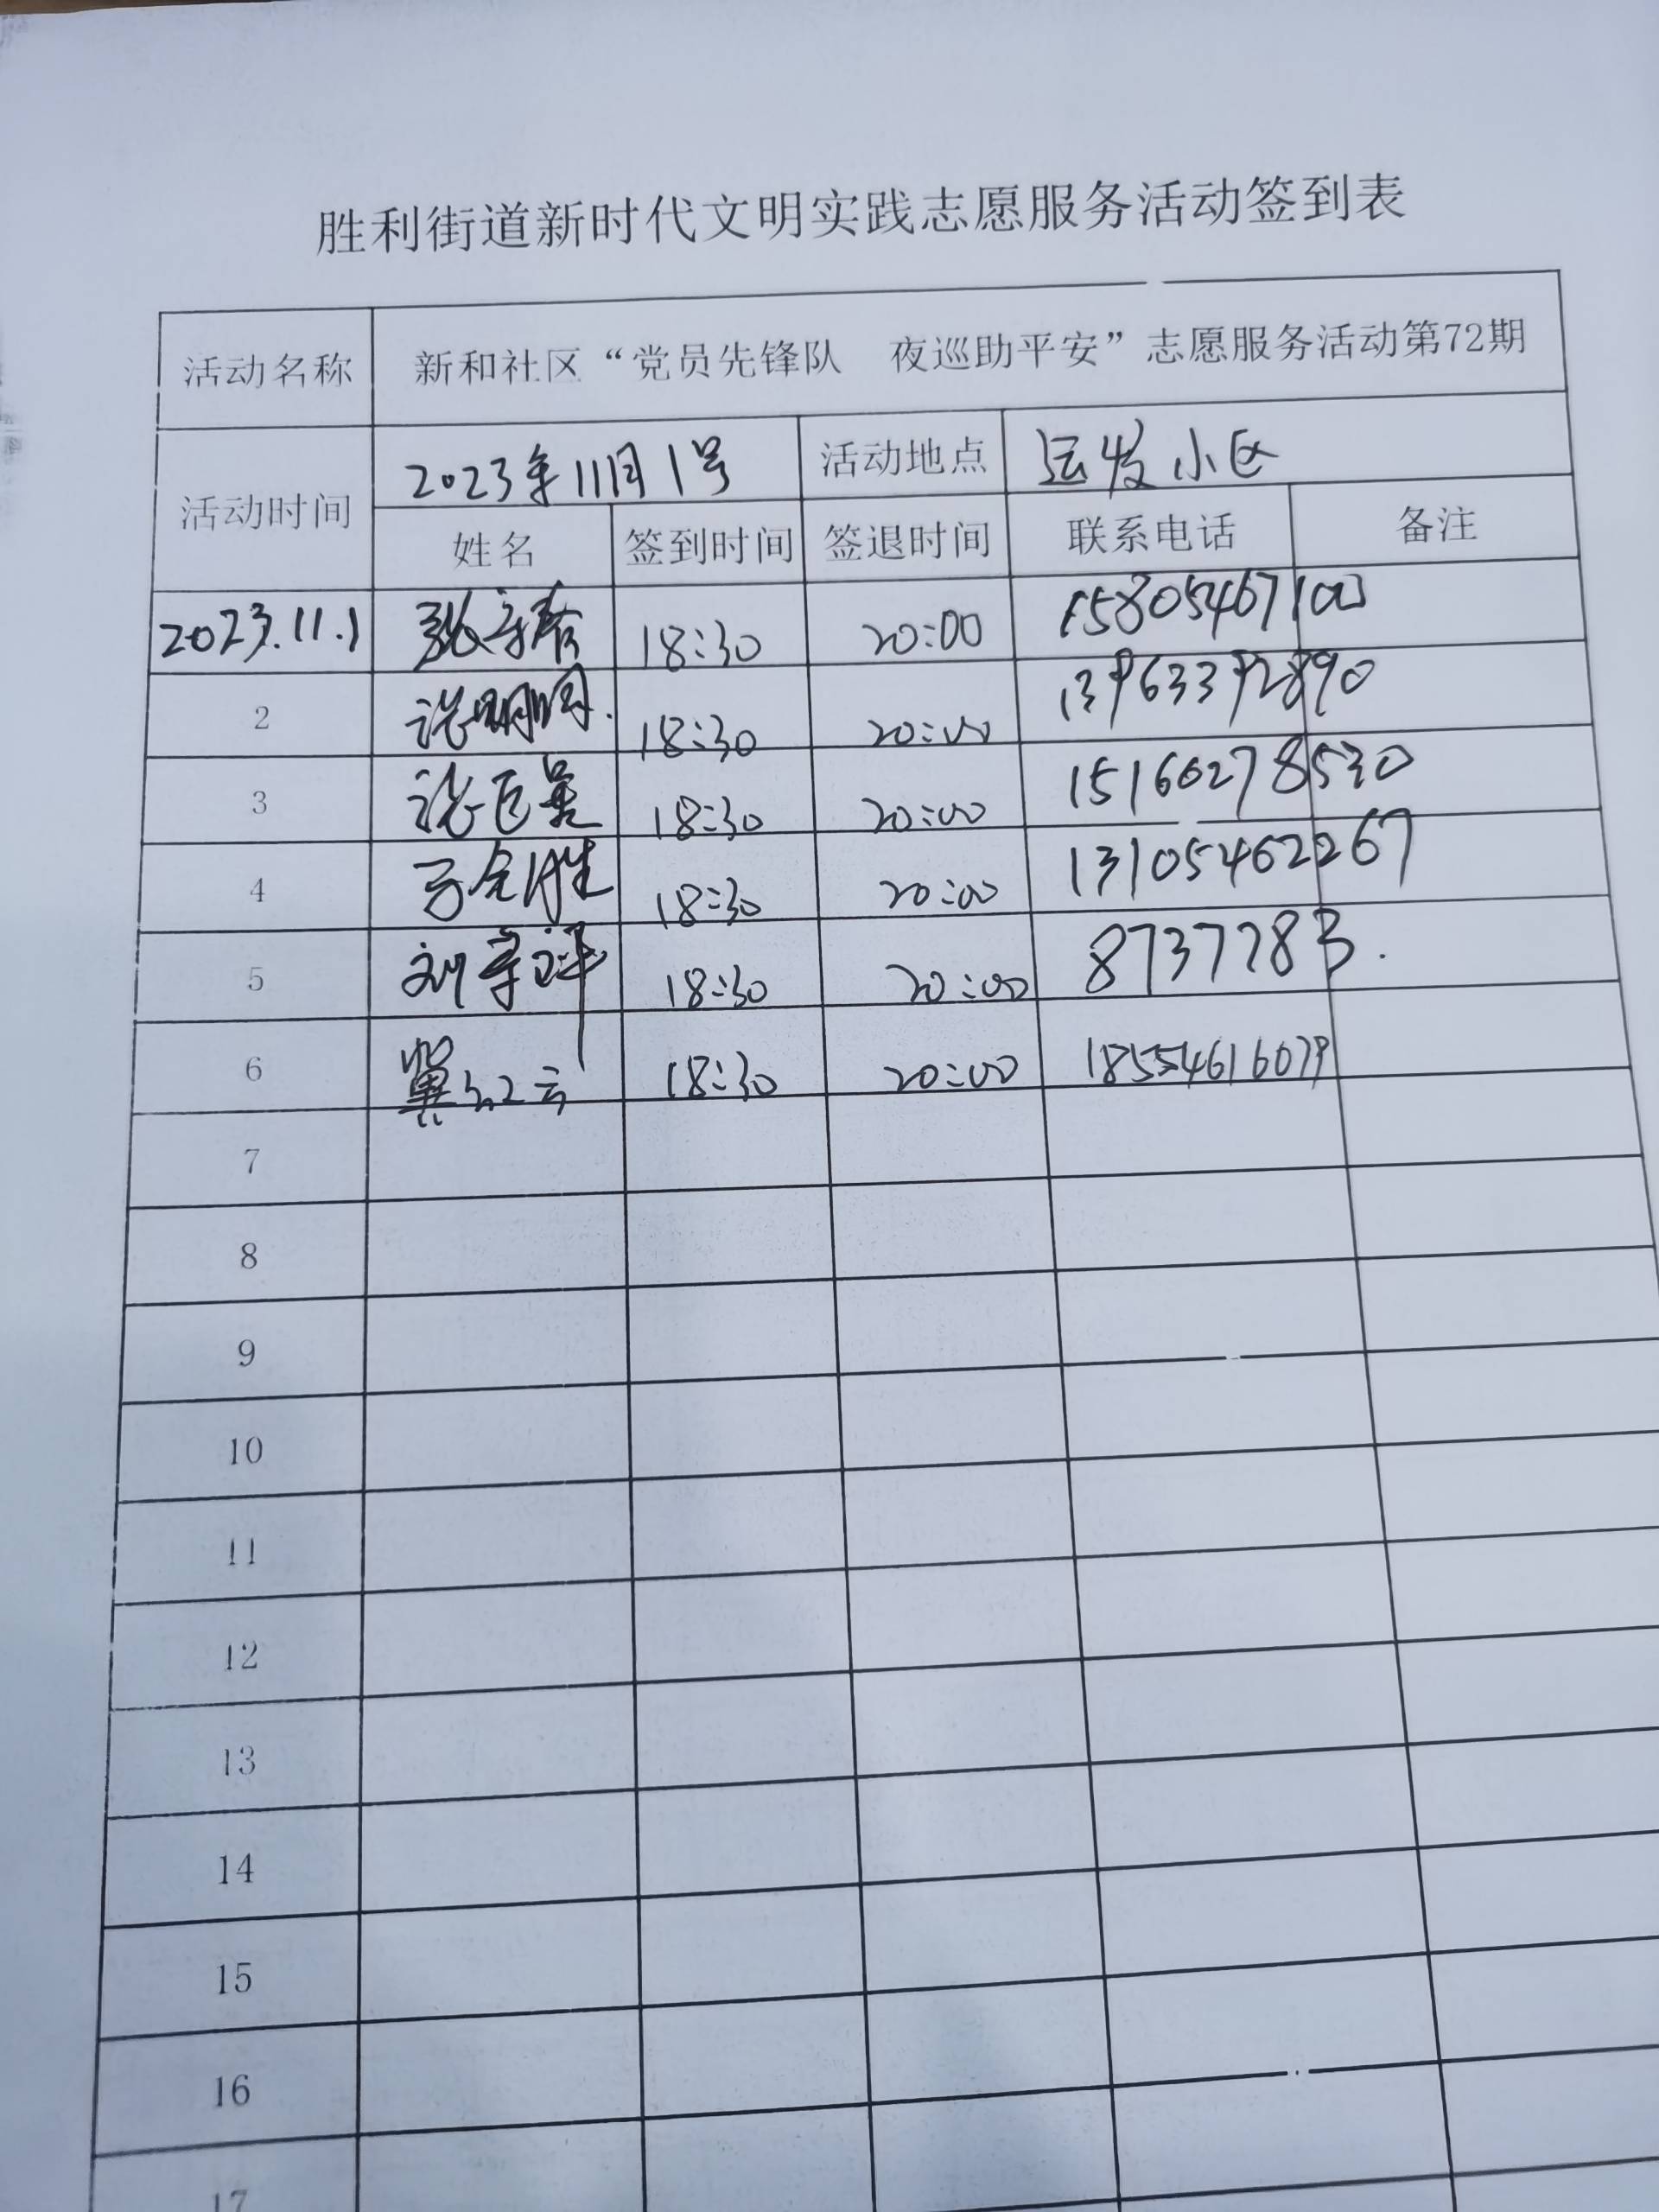 胜利街道新时代文明实践志愿服务活动签到表
活动名称 新和社区“党员先锋队 夜巡助平安”志愿服务活动第72期
活动时间 2023年11月1号 活动地点 运发小区
姓名 签到时间 签退时间 联系电话 备注
2023.11.1 18:30 20:00 15805467100
2 18:30 20:00 13963392890
3 18:30 20:00 15166278530
4 18:30 20:00 13105462267
5 刘 18:30 20:00 8737783.
6 冀红云 18:30 20:00 18554616079
7
8
9
10
11
12
13
14
15
16
17